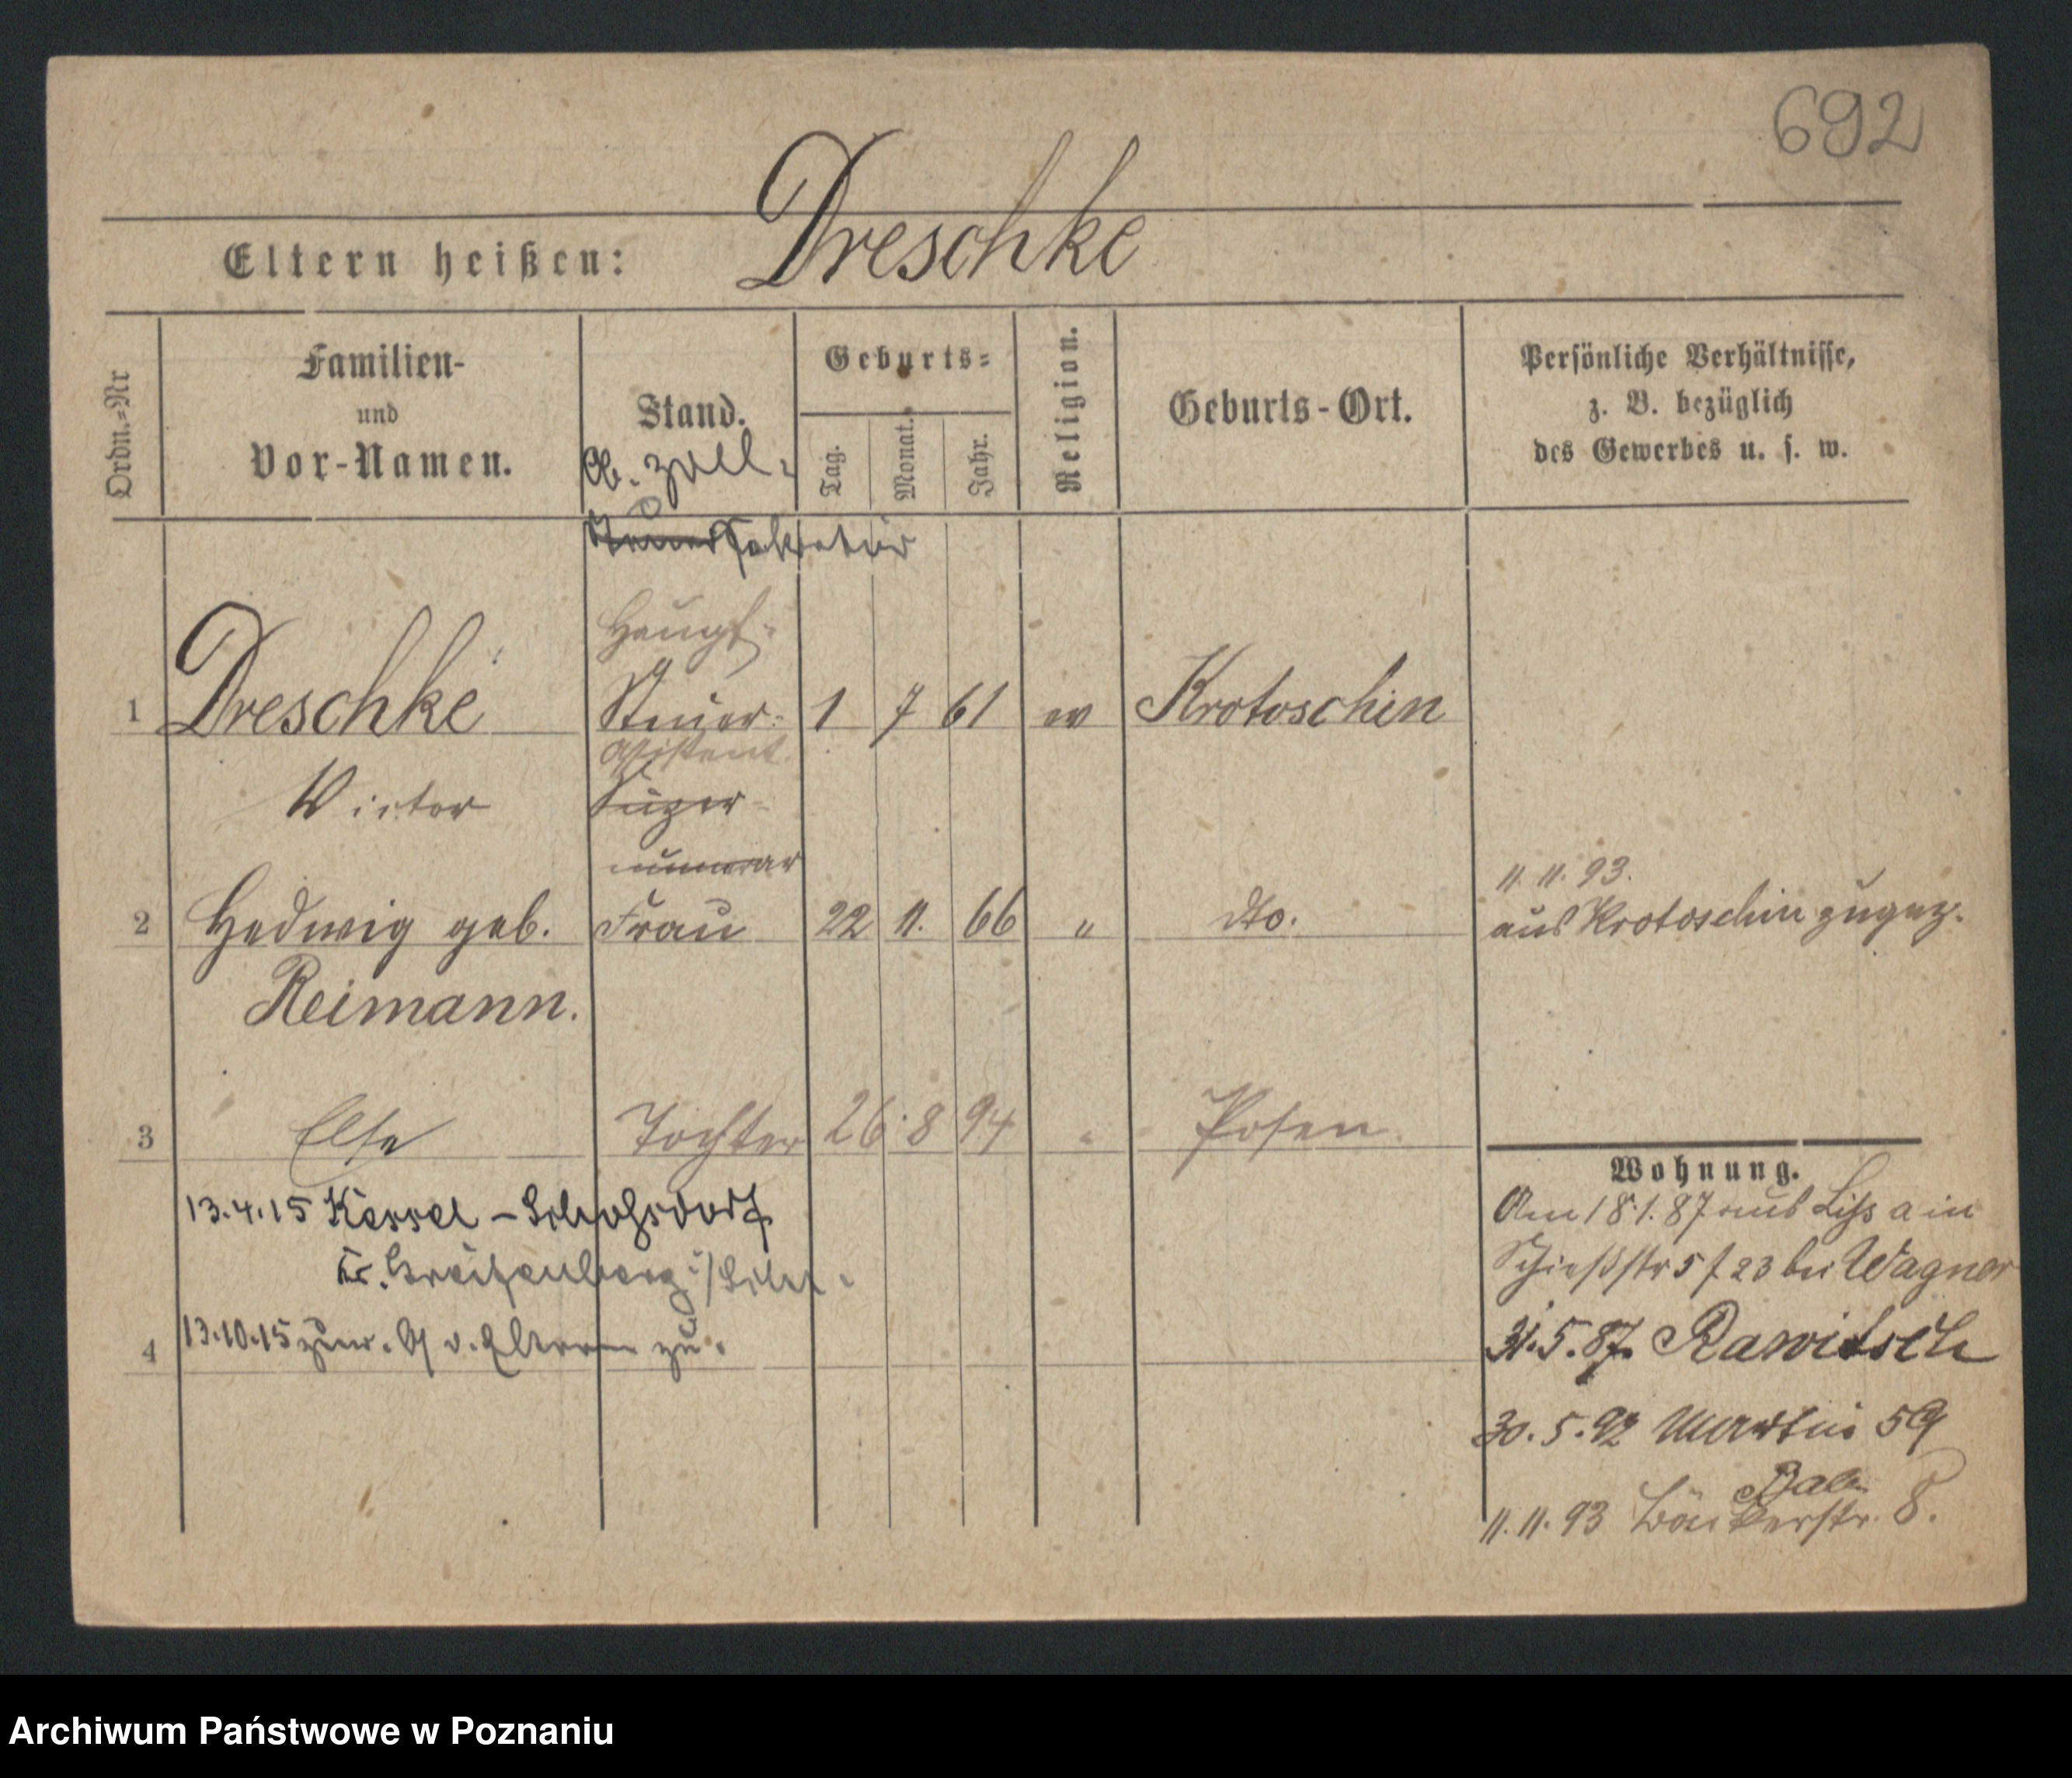 692
Eltern heißen: Dreschke
Ordn.=Nr
Familien-
und
Vor-Namen.
Stand.
Geburts=
Tag.
Monat.
Jahr.
Religion.
Geburts-Ort.
Persönliche Verhältnisse,
z. B. bezüglich
des Gewerbes u. s. w.
Ob. Zoll-
Steuer Sekretär
Haupt-
1 Dreschke Steuer- 1 7 61 ev Krotoschin
Assistent
Victor Super-
numerar
11. 11. 93.
2 Hedwig geb. Frau 22 11. 66 " dto. aus Krotoschin zugez.
Reimann.
3 Else Tochter 26 8 94 " Posen
Wohnung.
13.4.15 Kessel - Schoßdorf
Kr. Greifenberg i/Schl.
13.10.15 zur. v. Eltern zu.
4
Am 18.1.87 aus Lissa in
Schießstr 5 f 23 bei Wagner
31.5.87. Rawitsch
30.5.92 Martin 59
11.11.93 Bäckerstr. 8.
Archiwum Państwowe w Poznaniu